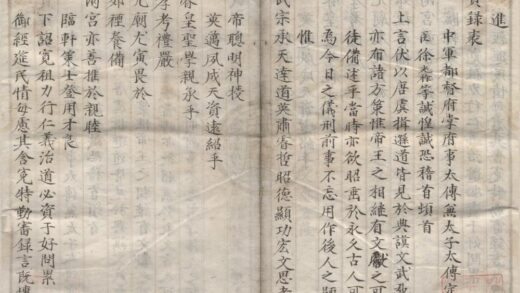 進
實錄表
中軍都督府掌府事太傅兼太子太傅定
臣徐等誠惶誠恐稽首頓首
上言伏以唐虞揖遜道皆見於典謨文武
亦有諸方策惟帝王之相繼有文獻之可
徒備述乎當時亦欲昭垂於永久古人可
為今日之儀刑前事不忘用作後人之
惟
宗承天達道英肅睿哲昭德顯功宏文思孝
帝聰明神授
英邁夙成天資遠紹乎
皇聖學親承乎
孝考禮嚴
元廟尤寅畏於
郊禋備
南宮亦善推於親睦
臨軒策士登用才良
下詔寬租力行仁義治道必資于好問累
御經筵民情每慮其含冤特勤審錄言既